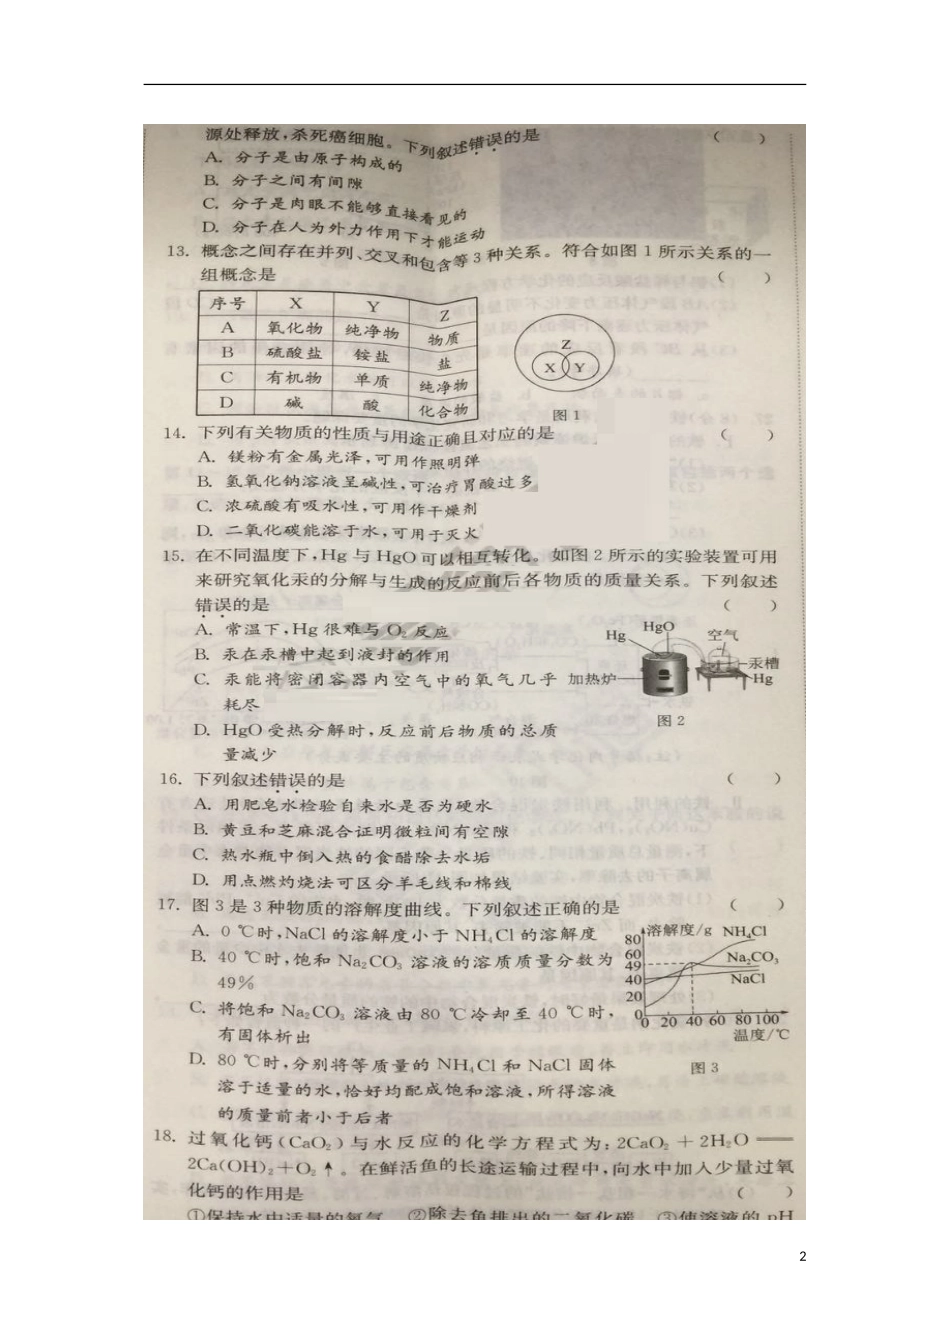 源处释放,杀死癌细胞。下列叙述错误的是 (  )
A. 分子是由原子构成的
B. 分子之间有间隙
C. 分子是肉眼不能够直接看见的
D. 分子在人为外力作用下才能运动
13. 概念之间存在并列、交叉和包含等3种关系。符合如图1所示关系的一
组概念是 (  )
序号 X Y Z
A 氧化物 纯净物 物质
B 硫酸盐 铵盐 盐
C 有机物 单质 纯净物
D 碱 酸 化合物
Z
X Y
图1
14. 下列有关物质的性质与用途正确且对应的是 (  )
A. 镁粉有金属光泽,可用作照明弹
B. 氢氧化钠溶液呈碱性,可治疗胃酸过多
C. 浓硫酸有吸水性,可用作干燥剂
D. 二氧化碳能溶于水,可用于灭火
15. 在不同温度下,Hg与HgO可以相互转化。如图2所示的实验装置可用
来研究氧化汞的分解与生成的反应前后各物质的质量关系。下列叙述
错误的是 (  )
A. 常温下,Hg很难与O₂反应
B. 汞在汞槽中起到液封的作用
C. 汞能将密闭容器内空气中的氧气几乎
耗尽
D. HgO受热分解时,反应前后物质的总质
量减少
Hg HgO 空气
汞槽
加热炉 Hg
图2
16. 下列叙述错误的是 (  )
A. 用肥皂水检验自来水是否为硬水
B. 黄豆和芝麻混合证明微粒间有空隙
C. 热水瓶中倒入热的食醋除去水垢
D. 用点燃灼烧法可区分羊毛线和棉线
17. 图3是3种物质的溶解度曲线。下列叙述正确的是 (  )
A. 0℃时,NaCl的溶解度小于NH₄Cl的溶解度
B. 40℃时,饱和Na₂CO₃溶液的溶质质量分数为
49%
C. 将饱和Na₂CO₃溶液由80℃冷却至40℃时,
有固体析出
D. 80℃时,分别将等质量的NH₄Cl和NaCl固体
溶于适量的水,恰好均配成饱和溶液,所得溶液
的质量前者小于后者
溶解度/g NH₄Cl
80
60 Na₂CO₃
49
40 NaCl
20
0
0 20 40 60 80 100
温度/℃
图3
18. 过氧化钙(CaO₂)与水反应的化学方程式为:2CaO₂+2H₂O══
2Ca(OH)₂+O₂↑。在鲜活鱼的长途运输过程中,向水中加入少量过氧
化钙的作用是 (  )
①保持水中适量的氧气 ②除去鱼排出的二氧化碳 ③使溶液的pH
2